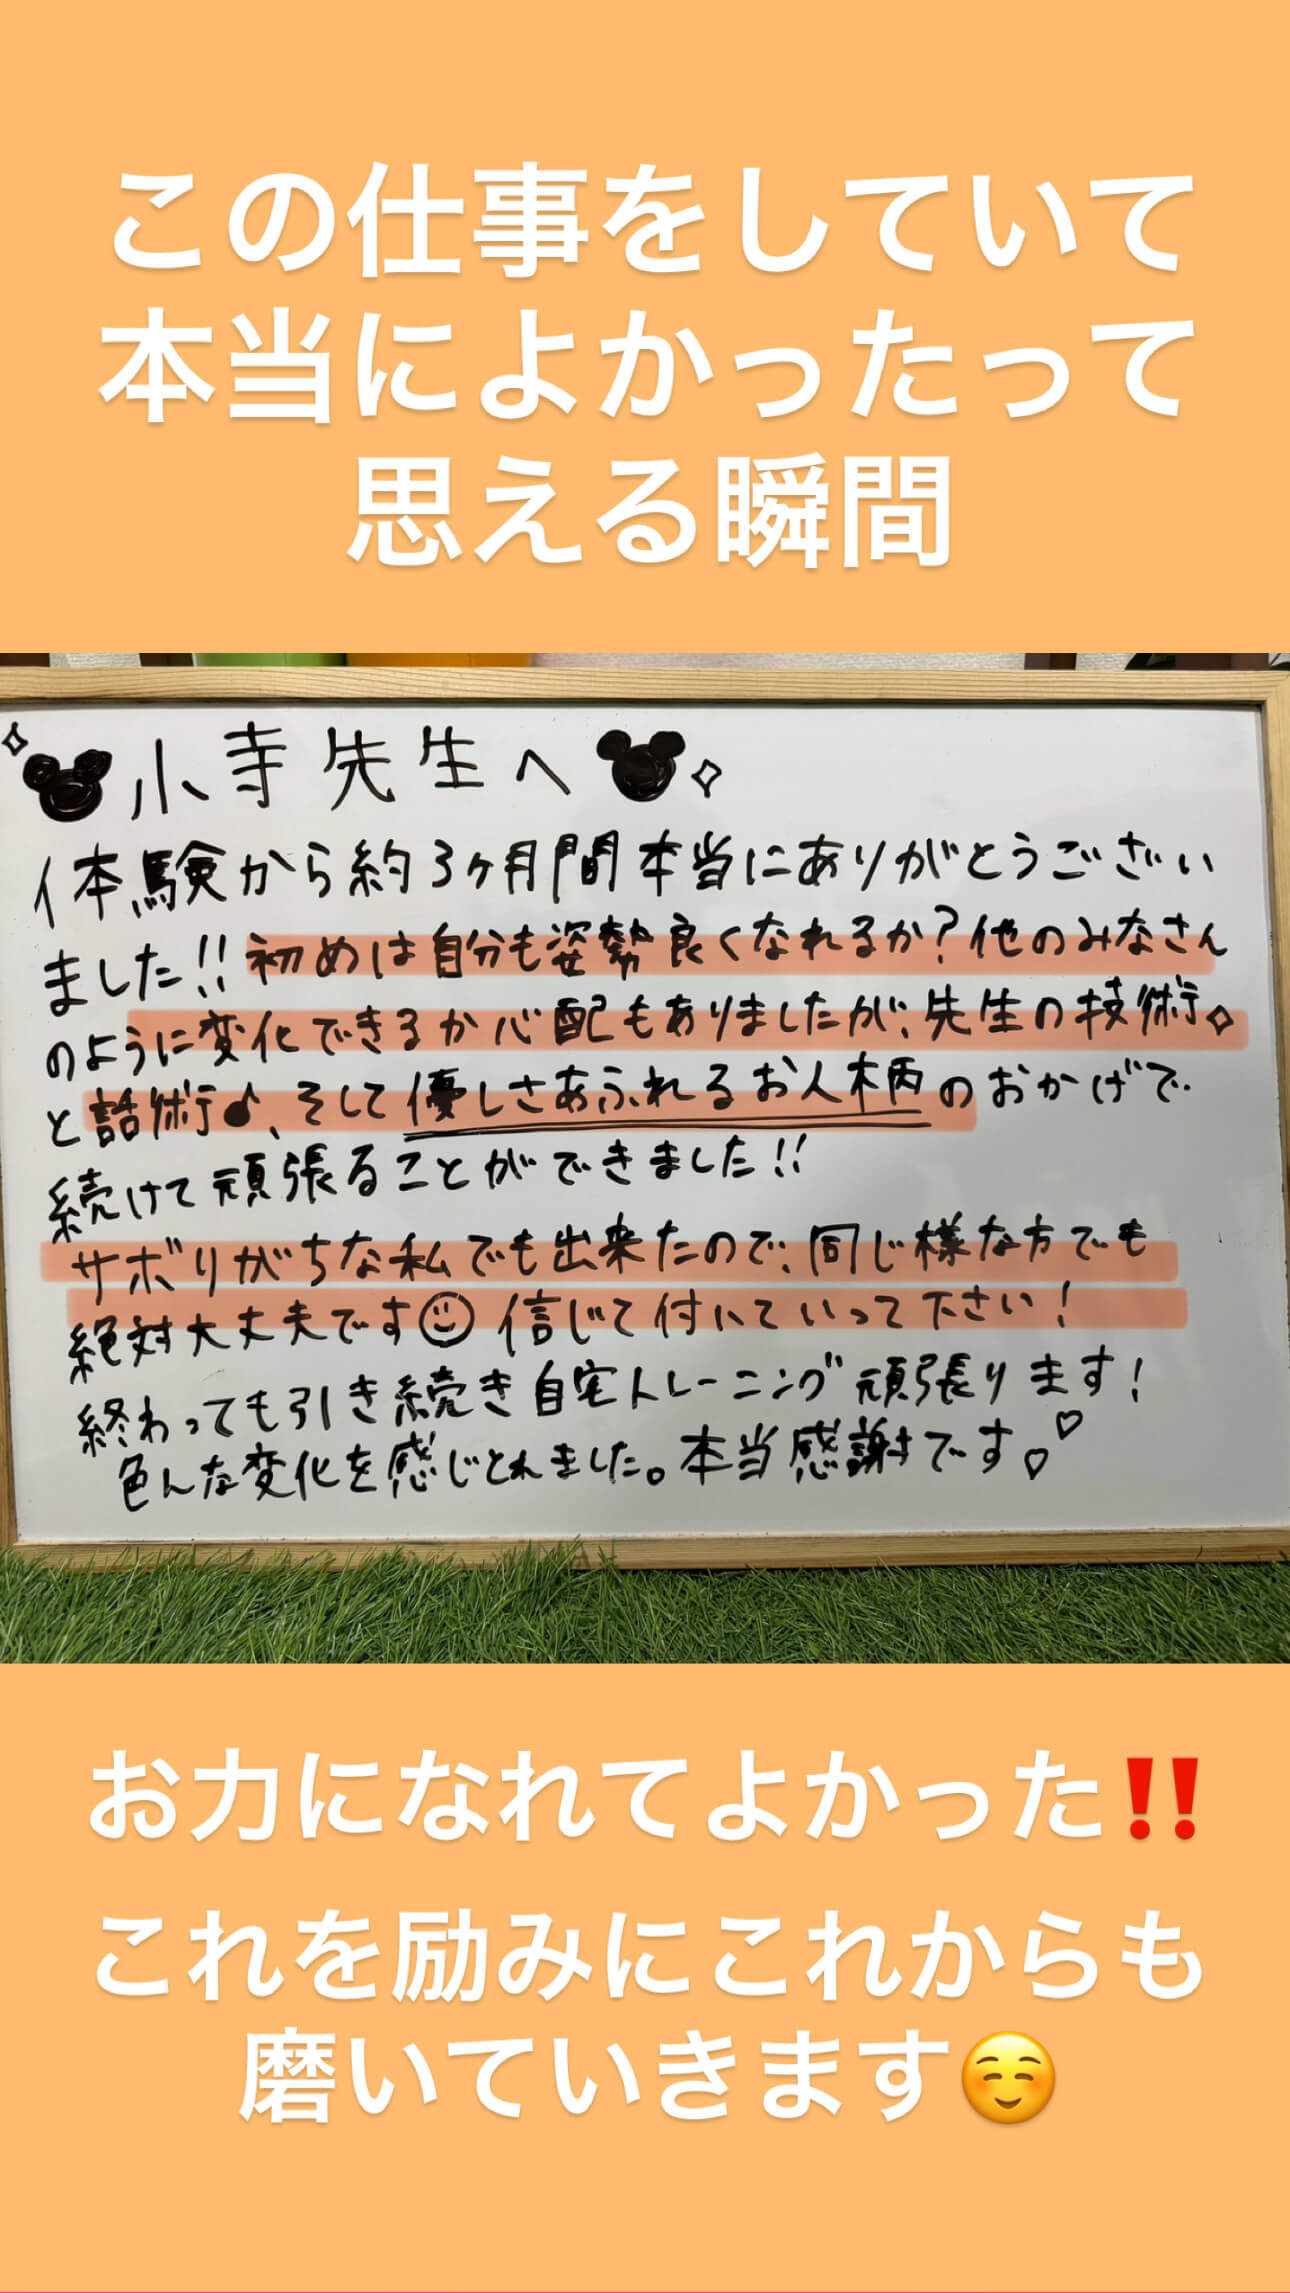 この仕事をしていて
本当によかったって
思える瞬間
小寺先生へ
体験から約3ヶ月間本当にありがとうござい
ました!! 初めは自分も姿勢良くなれるか?他のみなさん
のように変化できるか心配もありましたが、先生の技術
と話術♪、そして優しさあふれるお人柄のおかげで
続けて頑張ることができました!!
サボりがちな私でも出来たので、同じ様な方でも
絶対大丈夫です☺信じて付いていって下さい!
終わっても引き続き自宅トレーニング頑張ります!
色んな変化を感じとれました。本当感謝です。♡
お力になれてよかった‼️
これを励みにこれからも
磨いていきます☺️